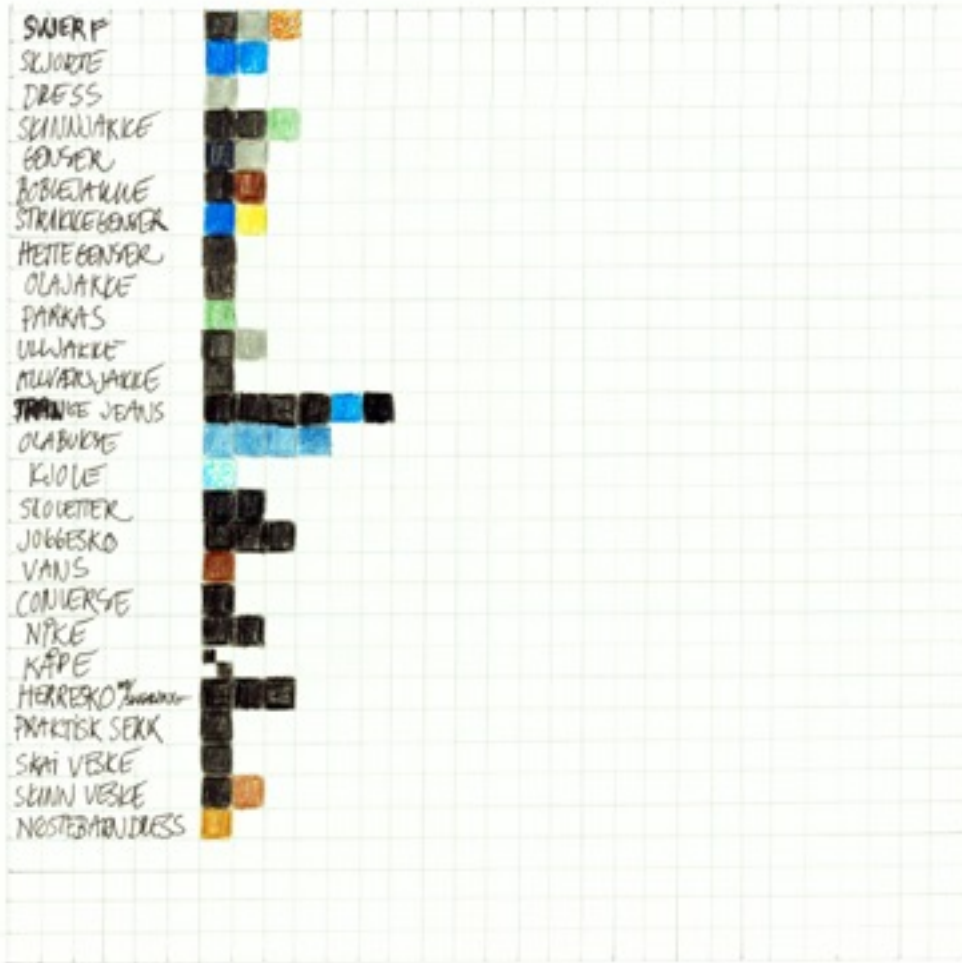 SKJERF
SKJORTE
DRESS
SKINNJAKKE
GENSER
BOBLEJAKKE
STRIKKEGENSER
HETTEGENSER
OLAJAKKE
PARKAS
ULLJAKKE
ALLVÆRSJAKKE
TRANGE JEANS
OLABUKSE
KJOLE
SKOLETTER
JOGGESKO
VANS
CONVERSE
NIKE
KÅPE
HERRESKO
PRAKTISK SEKK
SKAI VESKE
SKINN VESKE
NØSTEBARNDRESS